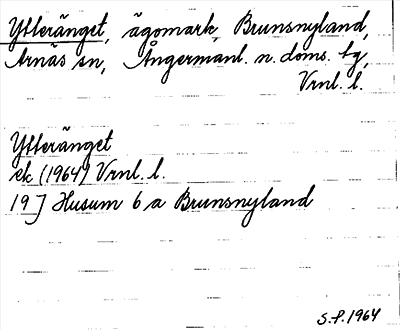 Ytteränget, ägomark, Brunsnyland,
Arnäs sn, Ångermanl. n. doms. tg,
Vrnl. l.
Ytteränget
ek (1964) Vrnl. l.
19 J Husum 6 a Brunsnyland
S.P. 1964